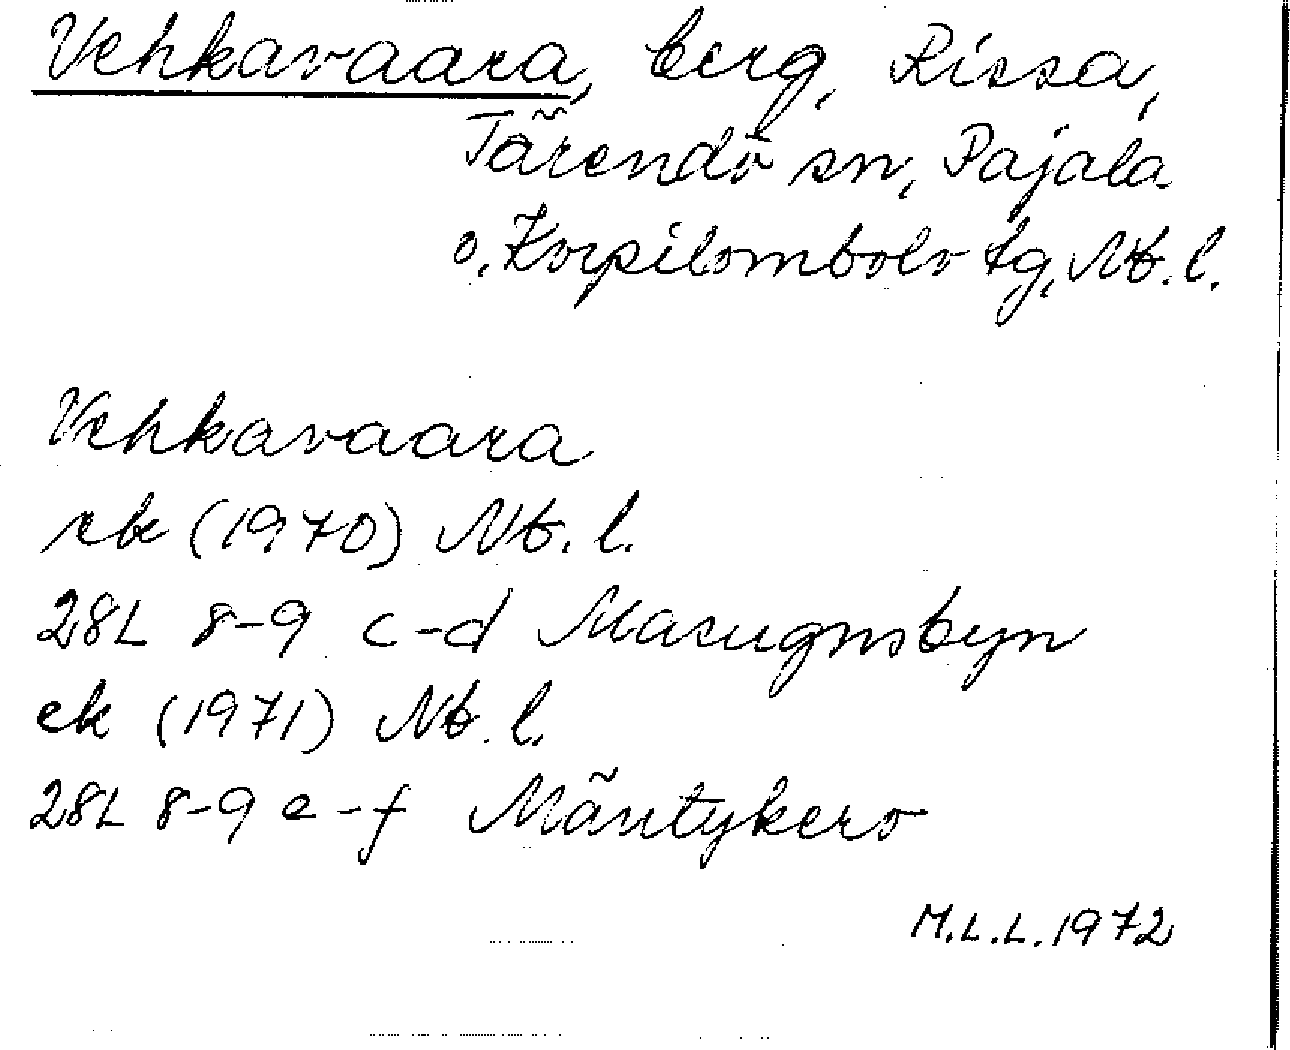 Vehkavaara, berg, Rissa,
Tärendö sn, Pajala
o. Korpilombolo tg, Nb. l.
Vehkavaara
rbk (1970) Nb. l.
28L 8-9 c-d Masugnsbyn
ek (1971) Nb. l.
28L 8-9 e-f Mäntykero
M.L.L. 1972